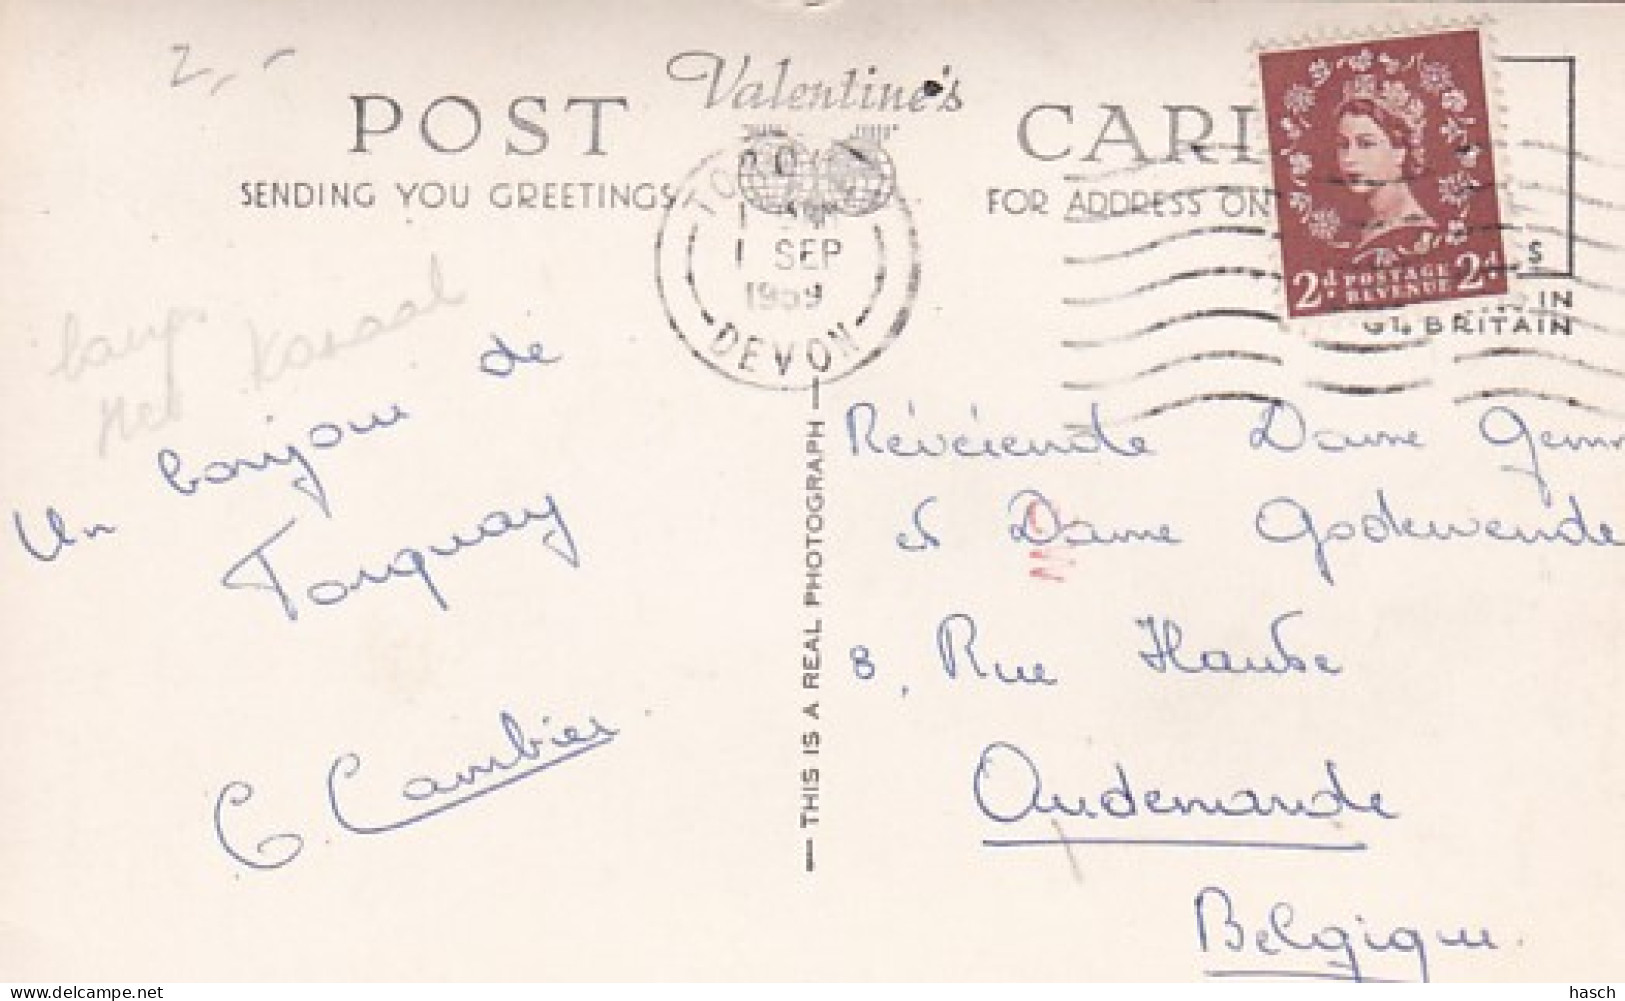 2,-
Valentine's
POST CARD
SENDING YOU GREETINGS
FOR ADDRESS ON
TORQUAY
1 SEP
1959
DEVON
2d POSTAGE REVENUE 2d
IN
GT. BRITAIN
Kanaal
Un bonjour de
Torquay
C. Cambier
THIS IS A REAL PHOTOGRAPH
Révérende Dame
et Dame Godewende
8, Rue Haute
Audenaarde
Belgique.
hasch